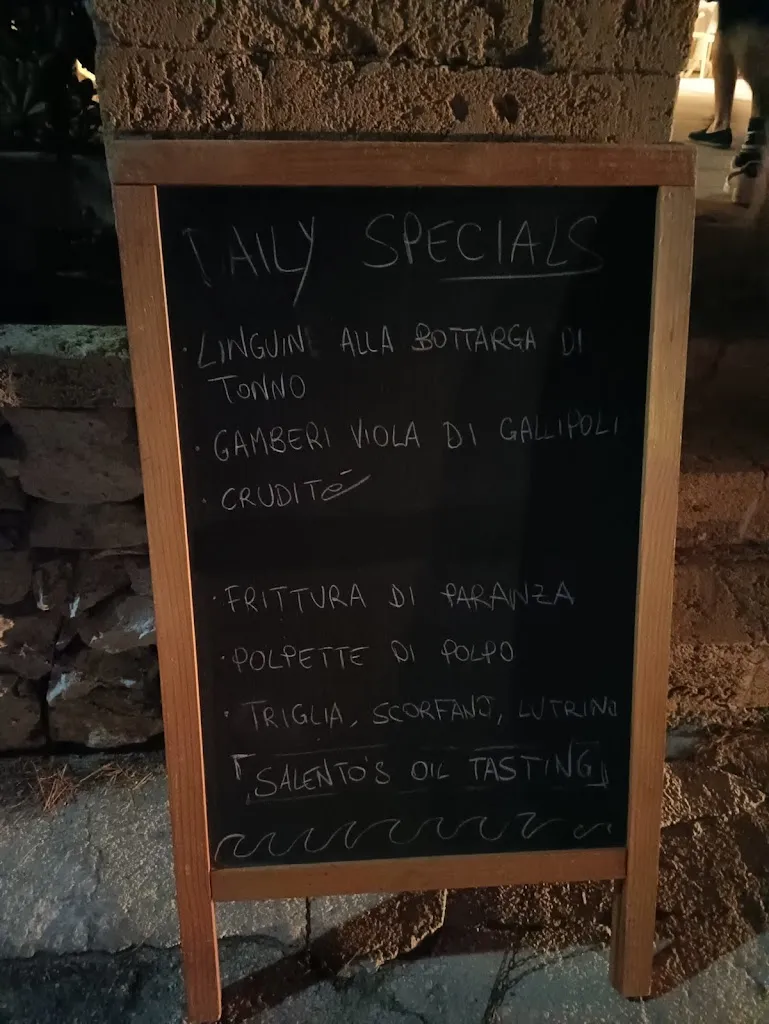 DAILY SPECIALS
· LINGUINE ALLA BOTTARGA DI
TONNO
· GAMBERI VIOLA DI GALLIPOLI
· CRUDITé
· FRITTURA DI PARANZA
· POLPETTE DI POLPO
· TRIGLIA, SCORFANO, LUTRINO
「SALENTO'S OIL TASTING」